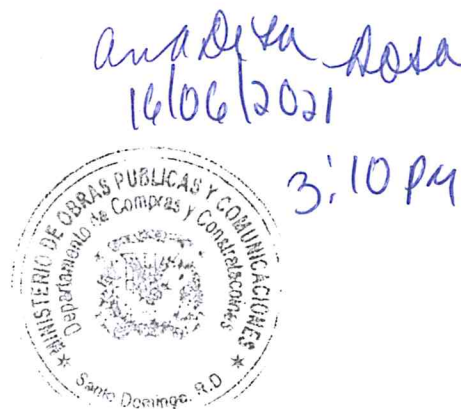 Ana De La Rosa
16/06/2021
3:10 PM
MINISTERIO DE OBRAS PUBLICAS Y COMUNICACIONES
Departamento de Compras y Constrataciones
Santo Domingo, R.D